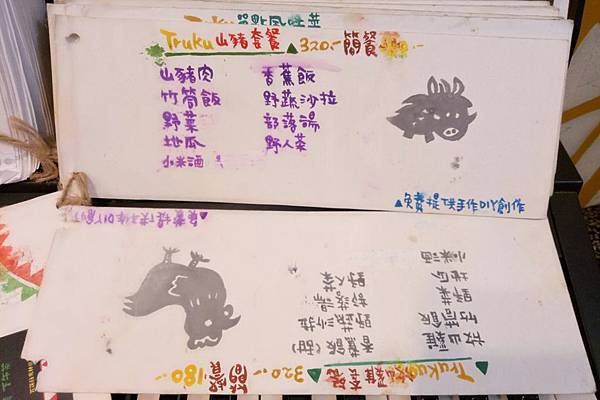 單點風味菜
Truku 山豬套餐 ▲320.- 簡餐
山豬肉 香蕉飯
竹筒飯 野蔬沙拉
野菜 部落湯
地瓜 野人茶
小米酒
▲免費提供手作DIY創作
▲免費提供手作DIY創
Truku 雞套餐 ▲320.- 簡餐 180.-
放山雞 香蕉飯(甜)
竹筒飯 野蔬沙拉
野菜 部落湯
地瓜 野人茶
小米酒